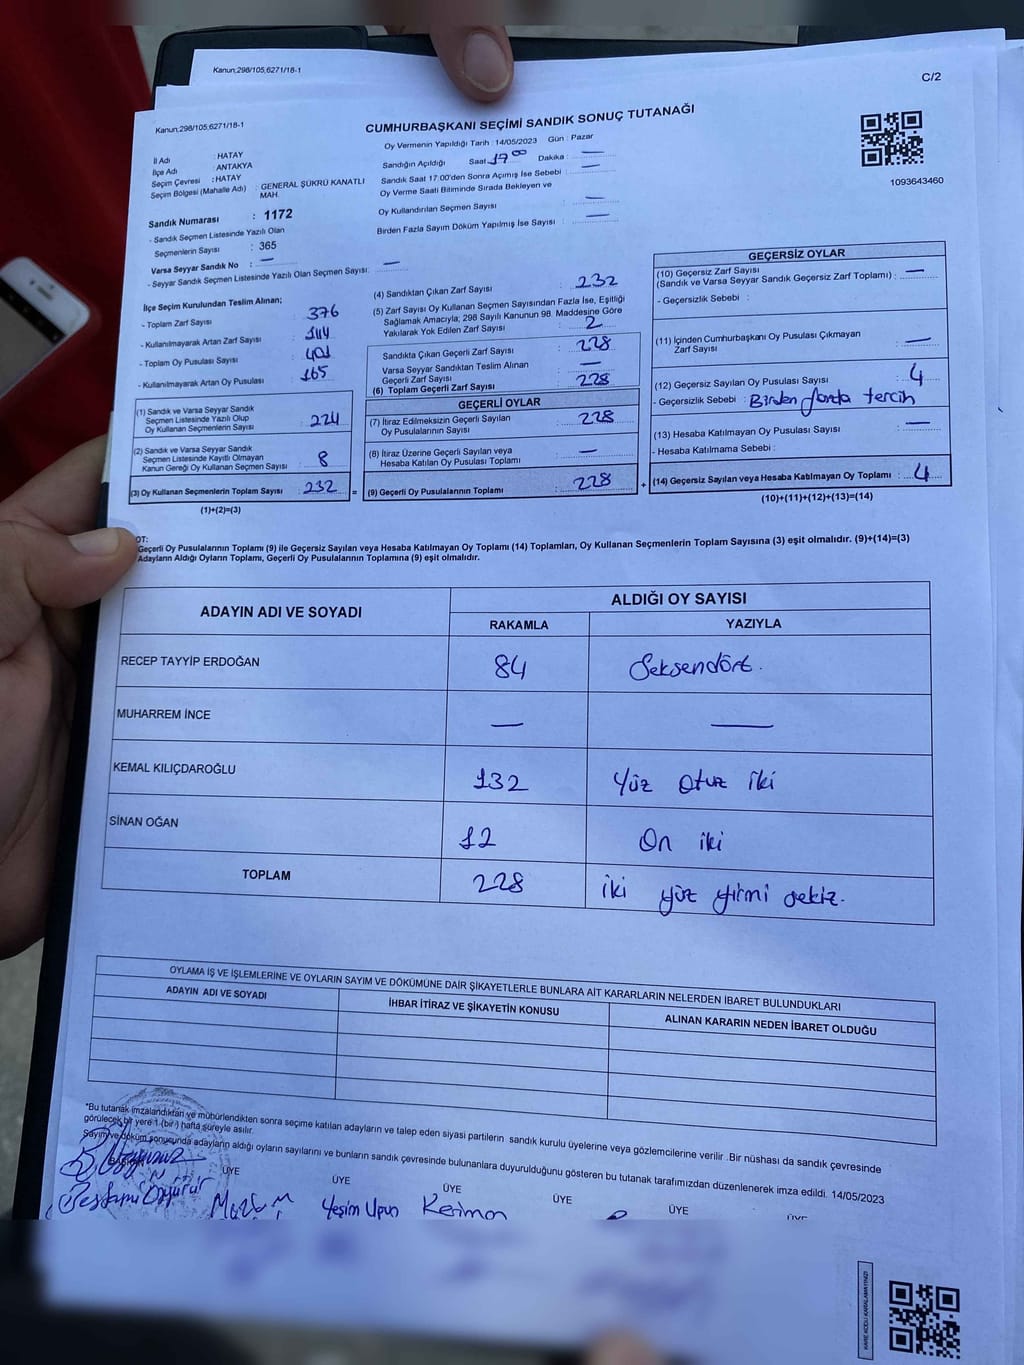 Kanun;298/105,6271/18-1
C/2
Kanun;298/105,6271/18-1
CUMHURBAŞKANI SEÇİMİ SANDIK SONUÇ TUTANAĞI
Oy Vermenin Yapıldığı Tarih : 14/05/2023 Gün : Pazar
İl Adı : HATAY
İlçe Adı : ANTAKYA
Seçim Çevresi : HATAY
Seçim Bölgesi (Mahalle Adı) : GENERAL ŞÜKRÜ KANATLI MAH.
Sandığın Açıldığı Saat : 17 00 Dakika : —
Sandık Saat 17:00'den Sonra Açımış İse Sebebi : —
Oy Verme Saati Bitiminde Sırada Bekleyen ve
Oy Kullandırılan Seçmen Sayısı : —
Birden Fazla Sayım Döküm Yapılmış İse Sayısı : —
1093643460
Sandık Numarası : 1172
- Sandık Seçmen Listesinde Yazılı Olan
Seçmenlerin Sayısı : 365
Varsa Seyyar Sandık No : —
- Seyyar Sandık Seçmen Listesinde Yazılı Olan Seçmen Sayısı: —
İlçe Seçim Kurulundan Teslim Alınan;
- Toplam Zarf Sayısı : 376
- Kullanılmayarak Artan Zarf Sayısı : 144
- Toplam Oy Pusulası Sayısı : 401
- Kullanılmayarak Artan Oy Pusulası : 165
(1) Sandık ve Varsa Seyyar Sandık
Seçmen Listesinde Yazılı Olup
Oy Kullanan Seçmenlerin Sayısı : 224
(2) Sandık ve Varsa Seyyar Sandık
Seçmen Listesinde Kayıtlı Olmayan
Kanun Gereği Oy Kullanan Seçmen Sayısı : 8
(3) Oy Kullanan Seçmenlerin Toplam Sayısı : 232 =
(1)+(2)=(3)
(4) Sandıktan Çıkan Zarf Sayısı : 232
(5) Zarf Sayısı Oy Kullanan Seçmen Sayısından Fazla İse, Eşitliği
Sağlamak Amacıyla; 298 Sayılı Kanunun 98. Maddesine Göre
Yakılarak Yok Edilen Zarf Sayısı : 2
Sandıkta Çıkan Geçerli Zarf Sayısı : 228
Varsa Seyyar Sandıktan Teslim Alınan
Geçerli Zarf Sayısı : —
(6) Toplam Geçerli Zarf Sayısı : 228
GEÇERLİ OYLAR
(7) İtiraz Edilmeksizin Geçerli Sayılan
Oy Pusulalarının Sayısı : 228
(8) İtiraz Üzerine Geçerli Sayılan veya
Hesaba Katılan Oy Pusulası Toplamı : —
(9) Geçerli Oy Pusulalarının Toplamı : 228 +
GEÇERSİZ OYLAR
(10) Geçersiz Zarf Sayısı
(Sandık ve Varsa Seyyar Sandık Geçersiz Zarf Toplamı) : —
- Geçersizlik Sebebi :
(11) İçinden Cumhurbaşkanı Oy Pusulası Çıkmayan
Zarf Sayısı : —
(12) Geçersiz Sayılan Oy Pusulası Sayısı : 4
- Geçersizlik Sebebi : Birden fazla tercih
(13) Hesaba Katılmayan Oy Pusulası Sayısı : —
- Hesaba Katılmama Sebebi :
(14) Geçersiz Sayılan veya Hesaba Katılmayan Oy Toplamı : 4
(10)+(11)+(12)+(13)=(14)
OT:
Geçerli Oy Pusulalarının Toplamı (9) ile Geçersiz Sayılan veya Hesaba Katılmayan Oy Toplamı (14) Toplamları, Oy Kullanan Seçmenlerin Toplam Sayısına (3) eşit olmalıdır. (9)+(14)=(3)
Adayların Aldığı Oyların Toplamı, Geçerli Oy Pusulalarının Toplamına (9) eşit olmalıdır.
ADAYIN ADI VE SOYADI ALDIĞI OY SAYISI
RAKAMLA YAZIYLA
RECEP TAYYİP ERDOĞAN 84 Seksendört.
MUHARREM İNCE — —
KEMAL KILIÇDAROĞLU 132 Yüz Otuz iki
SİNAN OĞAN 12 On iki
TOPLAM 228 iki yüz yirmi sekiz.
OYLAMA İŞ VE İŞLEMLERİNE VE OYLARIN SAYIM VE DÖKÜMÜNE DAİR ŞİKAYETLERLE BUNLARA AİT KARARLARIN NELERDEN İBARET BULUNDUKLARI
ADAYIN ADI VE SOYADI İHBAR İTİRAZ VE ŞİKAYETİN KONUSU ALINAN KARARIN NEDEN İBARET OLDUĞU
*Bu tutanak imzalandıktan ve mühürlendikten sonra seçime katılan adayların ve talep eden siyasi partilerin sandık kurulu üyelerine veya gözlemcilerine verilir .Bir nüshası da sandık çevresinde
görülecek bir yere 1 (bir) hafta süreyle asılır.
Sayım ve döküm sonucunda adayların aldığı oyların sayılarını ve bunların sandık çevresinde bulunanlara duyurulduğunu gösteren bu tutanak tarafımızdan düzenlenerek imza edildi. 14/05/2023
ÜYE ÜYE ÜYE ÜYE ÜYE ÜYE
Yeşim Upun
KARE KODU KARALAMAYINIZ!